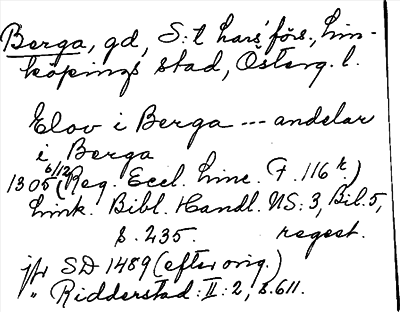 Berga, gd, S:t Lars' förs., Lin-
köpings stad, Österg. l.
Elov i Berga --- andelar
i Berga
1305 6/12 (Reg. Eccl. Linc. F. 116 r.)
Link. Bibl. Handl. NS: 3, Bil. 5,
s. 235. regest.
jfr SD 1489 (efter orig.)
" Ridderstad: II: 2, s. 611.